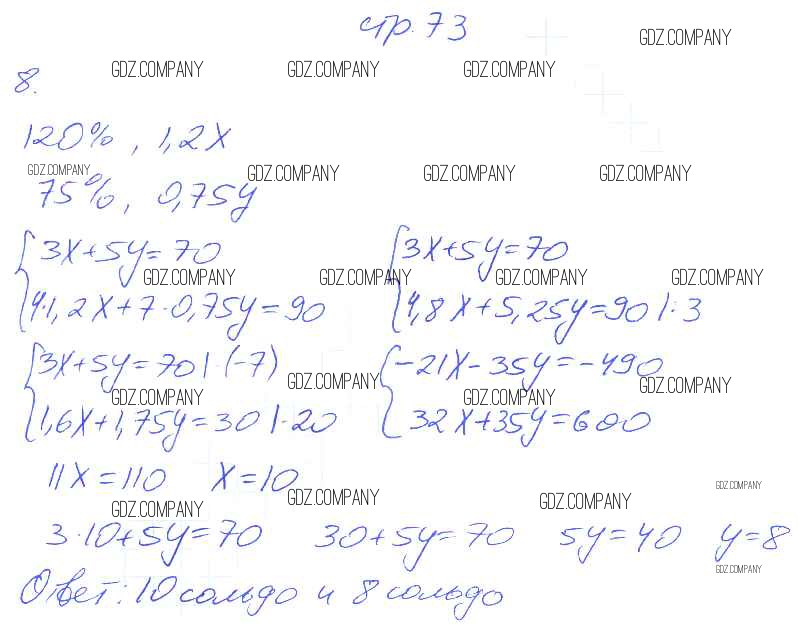 стр. 73
GDZ.COMPANY
8.
GDZ.COMPANY GDZ.COMPANY GDZ.COMPANY
120%, 1,2x
GDZ.COMPANY GDZ.COMPANY GDZ.COMPANY GDZ.COMPANY
75%, 0,75y
3x+5y=70 3x+5y=70
GDZ.COMPANY GDZ.COMPANY GDZ.COMPANY GDZ.COMPANY
4·1,2x+7·0,75y=90 4,8x+5,25y=90 |:3
3x+5y=70 |·(-7) -21x-35y=-490
GDZ.COMPANY GDZ.COMPANY GDZ.COMPANY GDZ.COMPANY
1,6x+1,75y=30 |·20 32x+35y=600
11x=110 x=10
GDZ.COMPANY
GDZ.COMPANY GDZ.COMPANY GDZ.COMPANY
3·10+5y=70 30+5y=70 5y=40 y=8
GDZ.COMPANY
Ответ: 10 сольдо и 8 сольдо